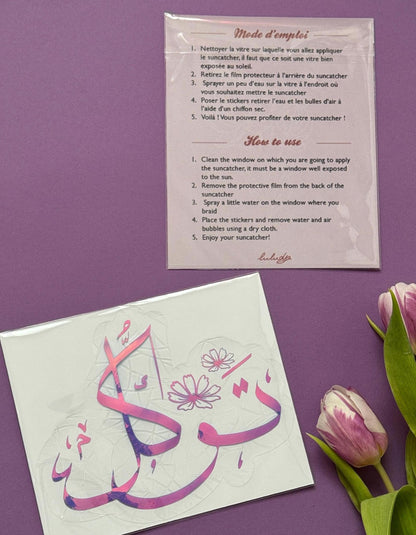 Mode d'emploi
1. Nettoyer la vitre sur laquelle vous allez appliquer
le suncatcher, il faut que ce soit une vitre bien
exposée au soleil.
2. Retirez le film protecteur à l'arrière du suncatcher
3. Sprayer un peu d'eau sur la vitre à l'endroit où
vous souhaitez mettre le suncatcher
4. Poser le stickers retirer l'eau et les bulles d'air à
l'aide d'un chiffon sec.
5. Voilà ! Vous pouvez profiter de votre suncatcher !
How to use
1. Clean the window on which you are going to apply
the suncatcher, it must be a window well exposed
to the sun.
2. Remove the protective film from the back of the
suncatcher
3. Spray a little water on the window where you
braid
4. Place the stickers and remove water and air
bubbles using a dry cloth.
5. Enjoy your suncatcher!
توكل